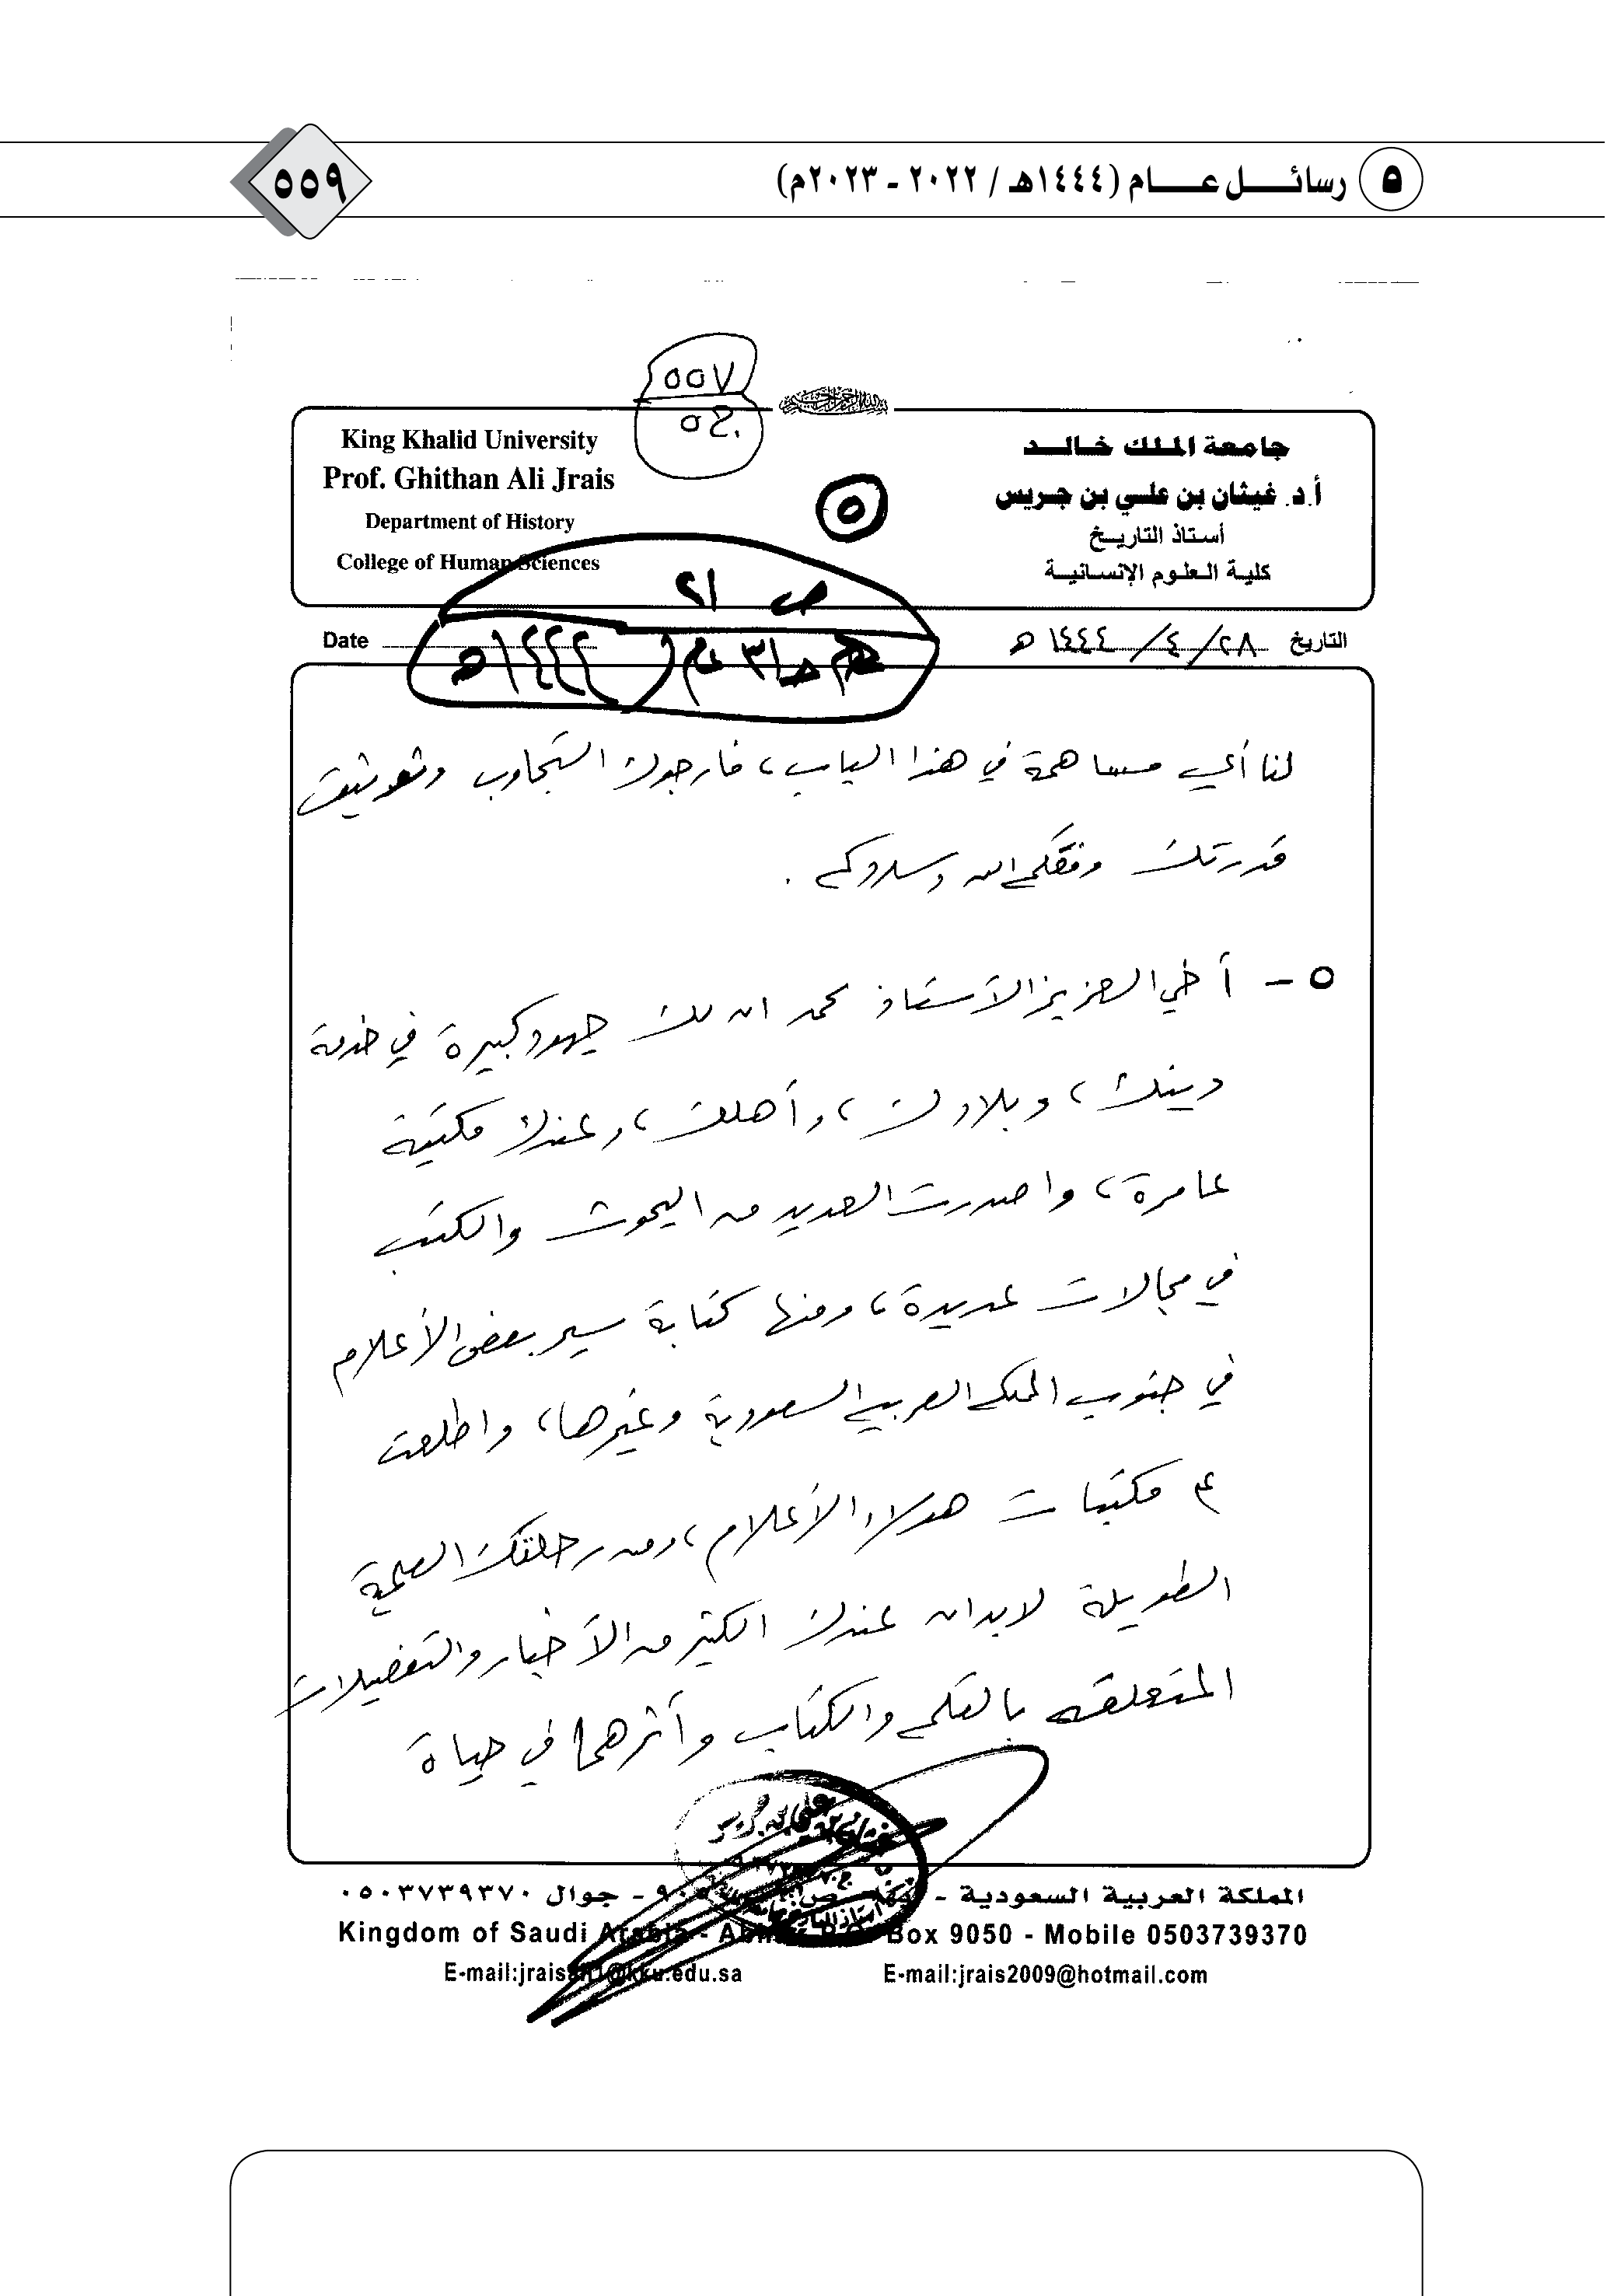 ٥ رسائل عام (١٤٤٤هـ / ٢٠٢٢ - ٢٠٢٣م)
٥٥٩
٥٥٧
King Khalid University
Prof. Ghithan Ali Jrais
Department of History
College of Human Sciences
جامعة الملك خالد
أ.د. غيثان بن علي بن جريس
أستاذ التاريخ
كلية العلوم الإنسانية
٥
ص ٢١
Date
١٤٤٤هـ
التاريخ ٢٨/٤/١٤٤٤ هـ
لنا أي مساهمة في هذا الباب، فارجوك التجاوب وتوثيق
قدرتك وفقكم الله
٥ - أخي العزيز الأستاذ محمد ان لك جهود كبيرة في خدمة
دينك، وبلادك، وأهلك، وعندك مكتبة
عامرة، واصدرت العديد من البحوث والكتب
في مجالات عديدة، ومنها كتابة سير بعض الأعلام
في جنوب المملكة العربية السعودية وغيرها، واطلعت
على مكتبات هؤلاء الأعلام، ومن رحلتك العلمية
الطويلة لابد ان عندك الكثير من الأخبار والتفصيلات
المتعلقه بالقلم والكتاب وأثرهما في حياة
المملكة العربية السعودية - جوال ٠٥٠٣٧٣٩٣٧٠
Kingdom of Saudi Arabia - Abha - P.O. Box 9050 - Mobile 0503739370
E-mail: @kku.edu.sa
E-mail:jrais2009@hotmail.com